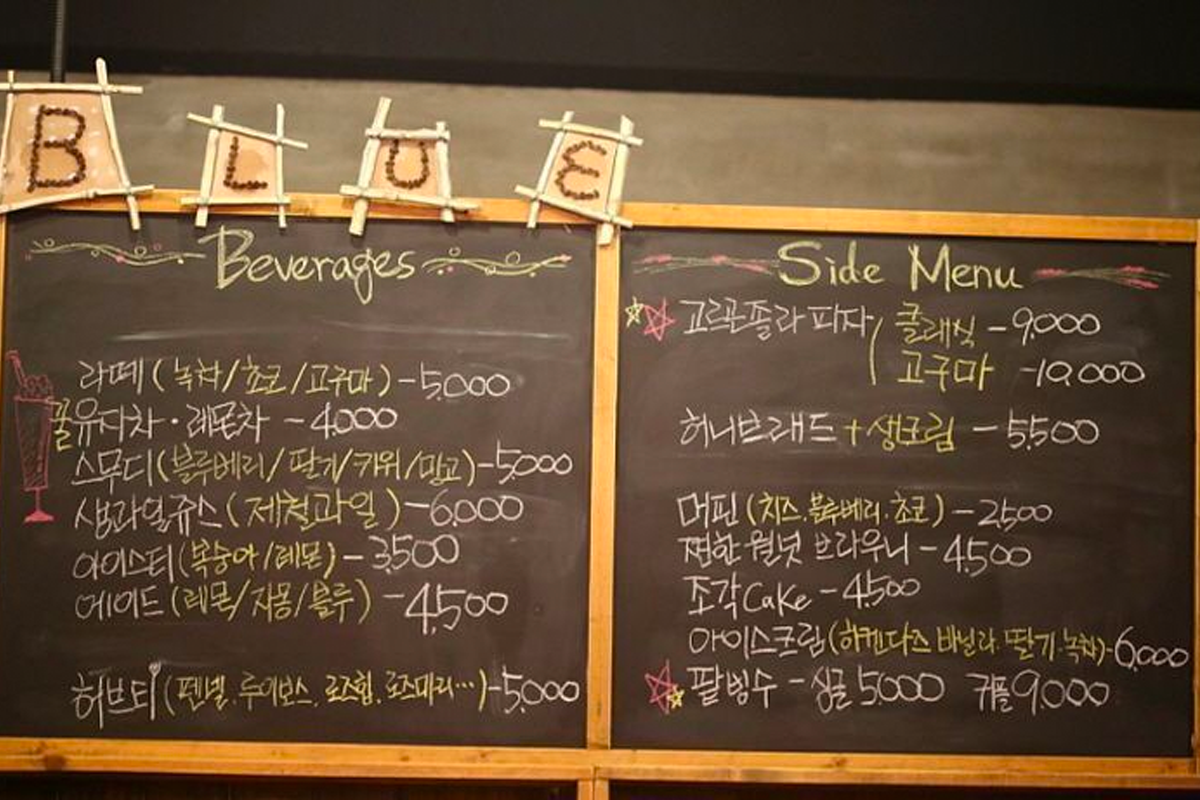 BLUE
Beverages
라떼 (녹차/초코/고구마) - 5,000
꿀유자차 · 레몬차 - 4,000
스무디 (블루베리/딸기/키위/망고) - 5,000
생과일쥬스 (제철과일) - 6,000
아이스티 (복숭아/레몬) - 3,500
에이드 (레몬/자몽/블루) - 4,500
허브티 (펜넬, 루이보스, 로즈힙, 로즈마리...) - 5,000
Side Menu
고르곤졸라 피자 ( 클래식 - 9,000
고구마 - 10,000
허니브래드 + 생크림 - 5,500
머핀 (치즈, 블루베리, 초코) - 2,500
찐한 월넛 브라우니 - 4,500
조각 Cake - 4,500
아이스크림 (하겐다즈 바닐라, 딸기, 녹차) - 6,000
팥빙수 - 싱글 5,000 커플 9,000